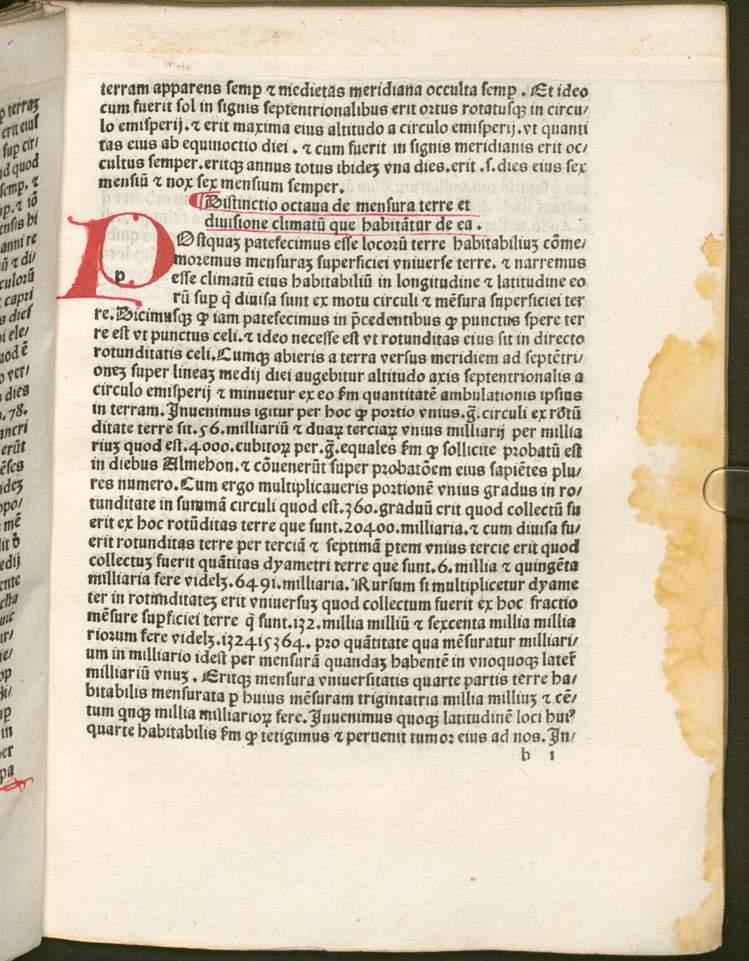 terram apparens semꝑ ⁊ medietas meridiana occulta semꝑ . Et ideo
cum fuerit sol in signis septentrionalibus erit ortus rotatusqꝫ in circu/
lo emisperij. ⁊ erit maxima eius altitudo a circulo emisperij. vt quanti
tas eius ab equinoctio diei . ⁊ cum fuerit in signis meridianis erit oc/
cultus semper. eritqꝫ annus totus ibideꝫ vna dies. erit .s. dies eius sex
mensiū ⁊ nox sex mensium semper.
Distinctio octaua de mensura terre et
diuisione climatū que habitātur de ea .
p
Ostquaꝫ patefecimus esse locorū terre habitabiliuꝫ cōme/
moremus mensuraꝫ superficiei vniuerse terre. ⁊ narremus
esse climatū eius habitabiliū in longitudine ⁊ latitudine eo
rū sup̄ q̄ diuisa sunt ex motu circuli ⁊ mēsura superficiei ter
re. Dicimusqꝫ ꝙ iam patefecimus in p̄cedentibus ꝙ punctus spere ter
re est vt punctus celi. ⁊ ideo necesse est vt rotunditas eius sit in directo
rotunditatis celi. Cumqꝫ abieris a terra versus meridiem ad septētri/
oneꝫ super lineaꝫ medij diei augebitur altitudo axis septentrionalis a
circulo emisperij ⁊ minuetur ex eo ẜm quantitatē ambulationis ipsius
in terram. Inuenimus igitur per hoc ꝙ portio vnius .g̃. circuli ex rōtū
ditate terre sit .56. milliariū ⁊ duaꝝ terciaꝝ vnius milliarij per millia
riuꝫ quod est .4000. cubitoꝝ per .g̃. equales ẜm ꝙ sollicite probatū est
in diebus Almehon. ⁊ cōuenerūt super probatōem eius sapiētes plu/
res numero. Cum ergo multiplicaueris portionē vnius gradus in ro/
tunditate in summā circuli quod est .360. graduū erit quod collectū fu
erit ex hoc rotūditas terre que sunt .20400. milliaria. ⁊ cum diuisa fu/
erit rotunditas terre per terciā ⁊ septimā ꝑtem vnius tercie erit quod
collectuꝫ fuerit quātitas dyametri terre que sunt .6. millia ⁊ quingēta
milliaria fere videlꝫ .6491. milliaria. Rursum si multiplicetur dyame
ter in rotunditateꝫ erit vniuersuꝫ quod collectum fuerit ex hoc fractio
mēsure suꝑficiei terre q̄ sunt .132. millia milliū ⁊ sexcenta millia millia
riorum fere videlꝫ .132415364. pro quātitate qua mēsuratur milliari/
um in milliario idest per mensurā quandaꝫ habentē in vnoquoqꝫ latere
milliariū vnuꝫ . Eritqꝫ mensura vniuersitatis quarte partis terre ha/
bitabilis mensurata ꝑ huius mēsuram trigintatria millia milliuꝫ ⁊ cē/
tum qnqꝫ millia milliarioꝝ fere. Inuenimus quoqꝫ latitudinē loci huiꝰ
quarte habitabilis ẜm ꝙ tetigimus ⁊ peruenit rumor eius ad nos. In/
b 1